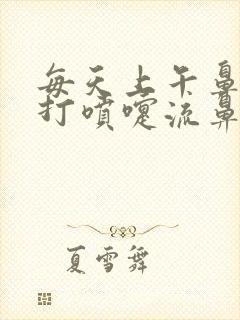 每天上午鼻
打喷嚏流鼻
夏雪舞